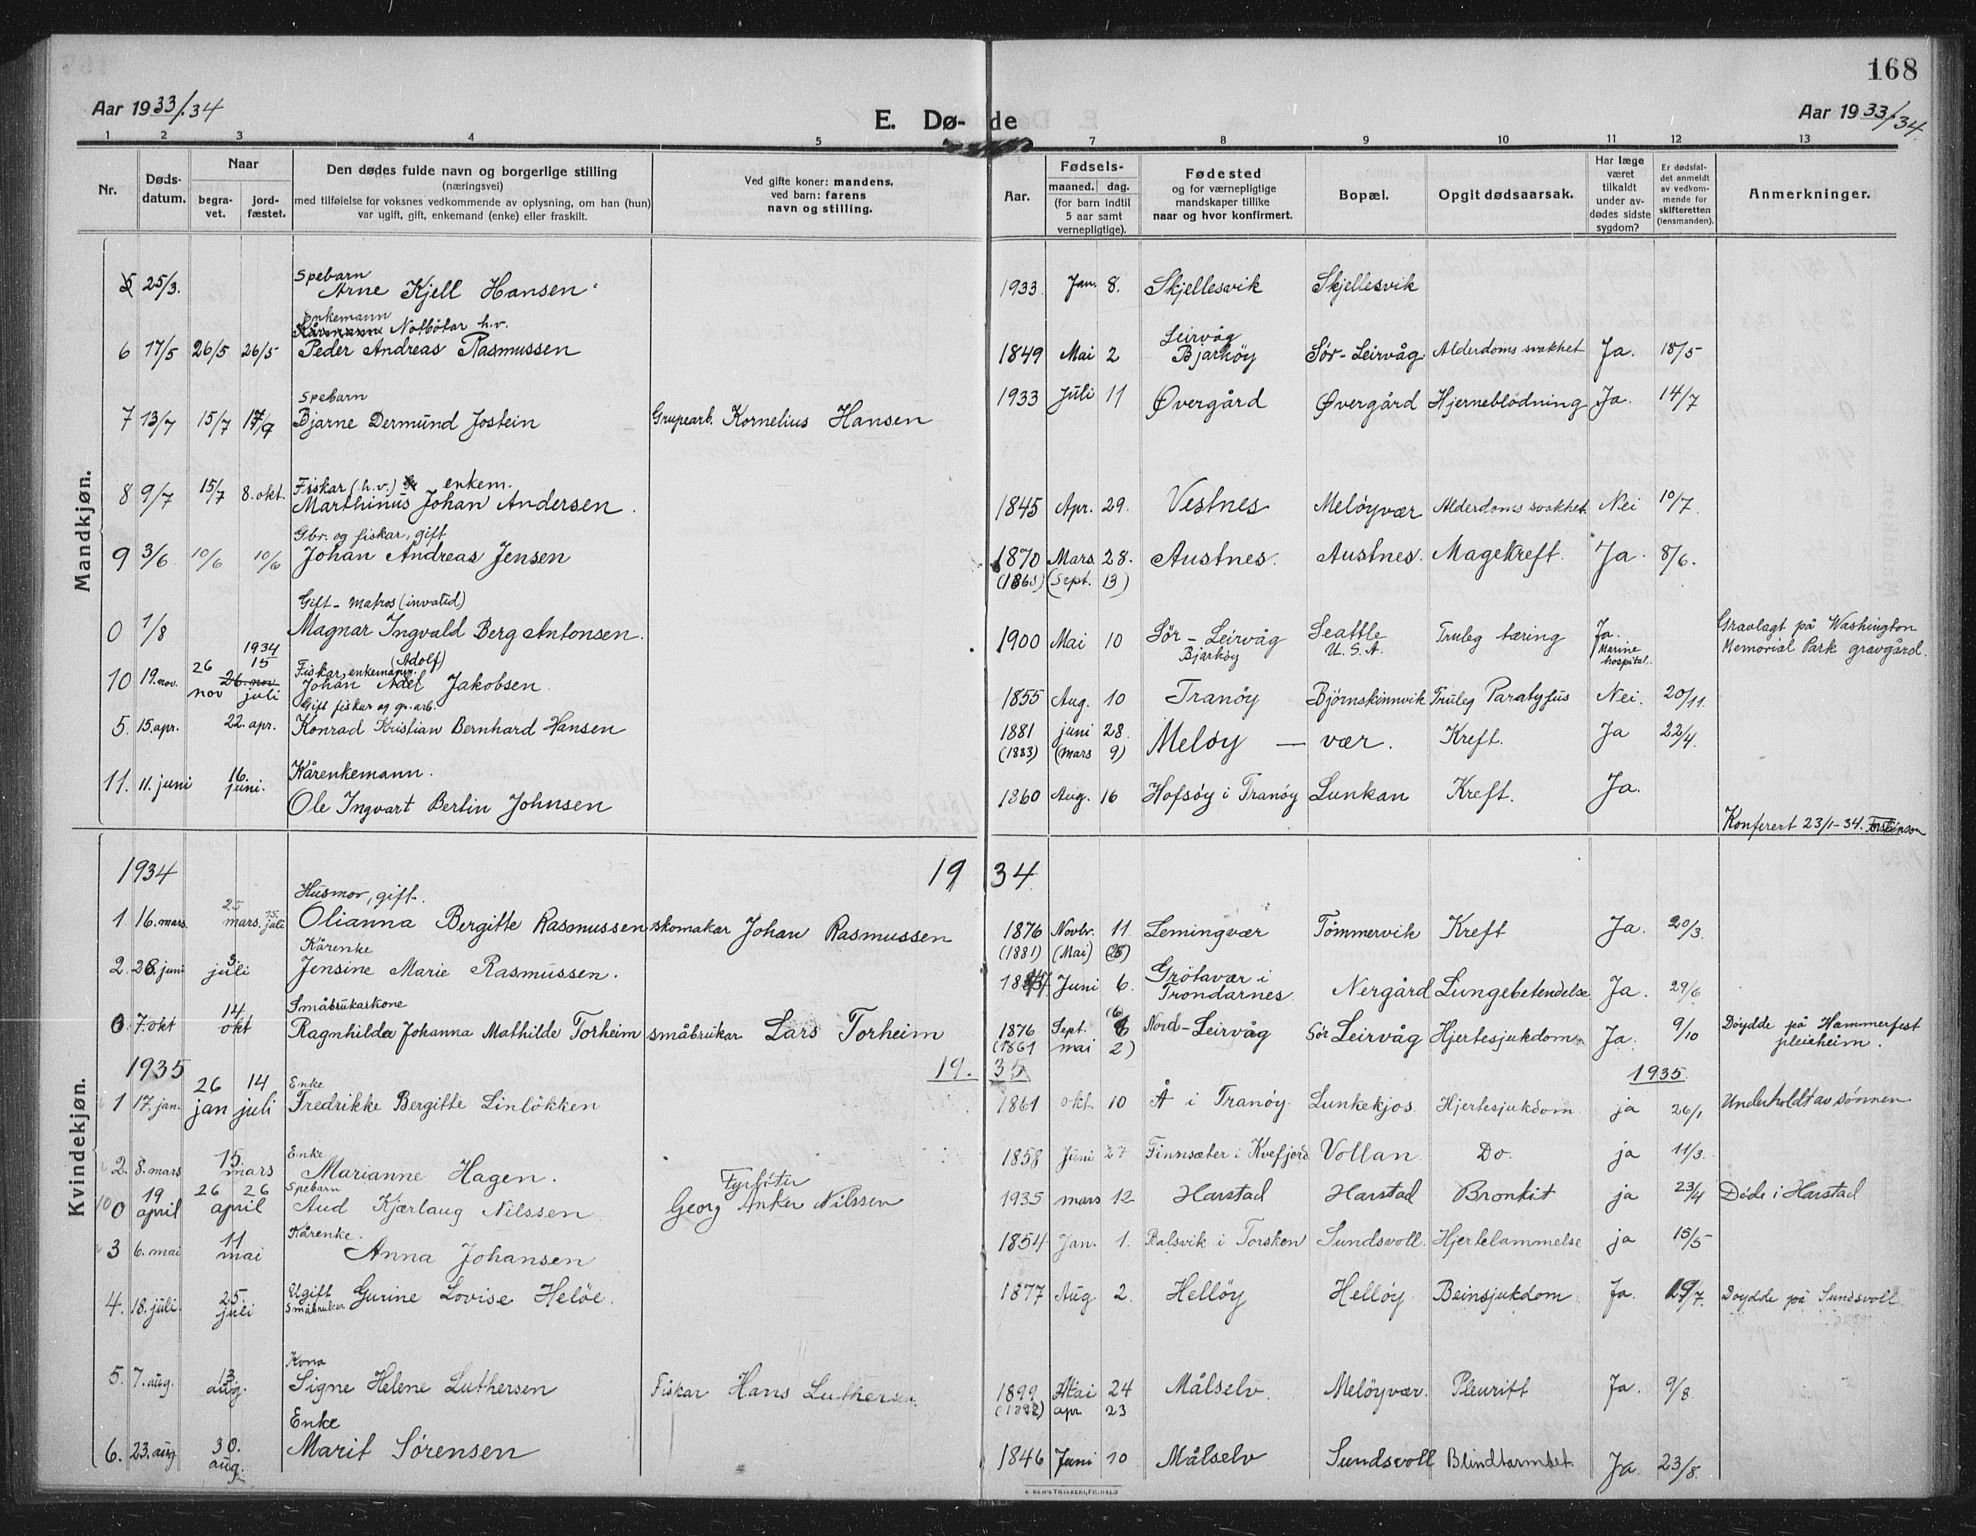 168
Aar 1933/34
E. Dø- de
Aar 1933/34
1 2 3 4 5 7 8 9 10 11 12 13
Nr.
Døds-datum.
Naar
begra-vet.
jord-fæstet.
Den dødes fulde navn og borgerlige stilling
(næringsvei)
med tilføielse for voksnes vedkommende av oplysning, om han (hun)
var ugift, gift, enkemand (enke) eller fraskilt.
Ved gifte koner: mandens,
ved barn: farens
navn og stilling.
Aar.
Fødsels-
maaned. dag.
(for barn indtil
5 aar samt
vernepligtige).
Fødested
og for værnepligtige
mandskaper tillike
naar og hvor konfirmert.
Bopæl.
Opgit dødsaarsak.
Har læge
været
tilkaldt
under av-
dødes sidste
sygdom?
Er dødsfal-
det anmeldt
av vedkom-
mende for
skifteretten
(lensmanden).
Anmerkninger.
Mandkjøn.
Spebarn
5 25/3. Arne Kjell Hansen 1933 Jan. 8. Skjellesvik Skjellesvik
Enkemann
Kårmann Notbøtar h.v.
6 17/5 26/5 26/5 Peder Andreas Rasmussen 1849 Mai 2 Leirvåg Bjarkøy Sør-Leirvåg Alderdomssvakhet Ja. 18/5
Spebarn
7 13/7 15/7 17/9 Bjarne Dermund Jostein Gruvearb. Kornelius Hansen 1933 Juli 11 Øvergård Øvergård Hjerneblødning Ja. 14/7
Fiskar (h.v.) enkem.
8 9/7 15/7 8. okt. Marthinus Johan Andersen. 1845 Apr. 29. Vestnes Meløyvær Alderdomssvakhet Nei 10/7.
Gbr. og fiskar, gift
9 3/6 10/6 10/6 Johan Andreas Jensen 1870 Mars. 28. Austnes. Austnes. Magekreft. Ja. 8/6.
(1865) (Sept. 13)
Gift - matros (invalid)
0 1/8 Magnar Ingvald Berg Antonsen. 1900 Mai 10 Sør-Leirvåg Bjarkøy Seattle U.S.A. Truleg tæring Ja. Marine hospital. Gravlagt på Washington
Memorial Park gravgård.
1934
Fiskar, enkemann. (Adolf)
10 19. nov. 26 nov 26. nov 15 juli Johan Adel Jakobsen. 1855 Aug. 10 Tranøy Bjørnskinnvik Truleg Paratyfus Nei. 20/11.
Gift fiskar og gr. arb.
5. 15. apr. 22. apr. Konrad Kristian Bernhard Hansen 1881 juni 28. Meløy — vær. Kreft. Ja 22/4.
(1883) (mars 9)
Kårenkemann.
11. 11. juni 16. juni. Ole Ingvart Bertin Johnsen 1860 Aug. 16 Hofsøy i Tranøy Lunkan Kreft. Ja.
Konferert 23/1-34. Torsteinson
Kvindekjøn.
1934 19 34.
Husmor, gift.
1 16. mars. 25 mars. 15. juli Olianna Bergitte Rasmussen skomakar Johan Rasmussen 1876 Novbr. 11. Lemingvær Tømmervik Kreft Ja. 20/3.
(1881) (Mai)
Kårenke
2. 28. juni 5. juli Jensine Marie Rasmussen. Juni 6. Grøtavær i Trondarnes. Nergård Lungebetendelse Ja. 29/6
Småbrukarkone
0. 7. okt 14. okt Ragnhilda Johanna Mathilde Torheim småbrukar Lars Torheim 1876 Sept. 6 Nord-Leirvåg Sør Leirvåg Hjertesjukdom Ja. 9/10 Døydde på Hammerfest
pleieheim.
(1861 mai 2)
1935 19. 35 1935
Enke
1 17. jan. 26 jan 14 juli Fredrikke Bergitte Linløkken 1861 okt. 10 Å i Tranøy. Lunkekjos. Hjertesjukdom ja 26/1 Underholdt av sønnen
Enke
2. 8. mars 15. mars Marianne Hagen. 1858 Juni 27 Finnsæter i Kvefjord Vollan. Do. ja 11/3.
Spebarn
0 19 april 26 april 26 Aud Kjærlaug Nilssen Fyrbøter Georg Anker Nilssen 1935 mars 12 Harstad Harstad Bronkit ja 23/4 Døde i Harstad
Kårenke.
3 6. mai 11 mai Anna Johansen 1854 Jan. 1. Balsvik i Torsken Sundsvoll. Hjertelammelse ja 15/5
Ugift
Småbruker
4. 18. juli. 25. juli Gurine Lovise Heløe. 1877 Aug 2. Helløy Helløy Beinsjukdom. Ja. 19/7. Døydde på Sundsvoll.
Kona
5. 7. aug. 13 aug. Signe Helene Luthersen Fiskar Hans Luthersen. 1899 Mai 24 Målselv. Meløyvær. Pleuritt Ja. 9/8
apr 23
Enke
6. 23. aug 30. aug. Marit Sørensen 1846 Juni 10 Målselv Sundsvoll Blindtarmbet. Ja. 23/8.